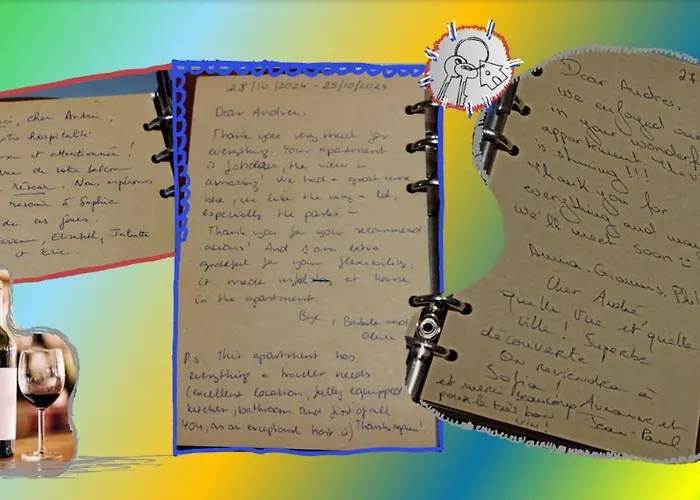 ci, cher André,
hospitalité
et attentionnée !
de votre salon
rêveur. Nous espérons
revenir à Sophia
de ces jours.
Elizabeth, Juliette
et Eric.
28/10/2024 - 29/10/2024
Dear Andrea,
Thank you very much for
everything. Your apartment
is fabulous, the view is
amazing. We had a great time
here, we like the city a lot,
especially the parks
Thank you for your recommend
ations! And I am extra
grateful for your flexibility,
it made us feel at home
in the apartment.
Bye, Barbola and
Olivier
P.S. This apartment has
everything a traveler needs
(excellent location, fully equipped
kitchen, bathroom and first of all
YOU, as an exceptional host :) Thanks again!
Dear Andres,
We enjoyed our
in your wonderful
appartment. The vi
is stunning!!!
Thank you for
everything and
we'll meet soon :)
Anna, Giannis,
Cher André,
quelle vue et quelle
ville ! Superbe
découverte
On reviendra à
Sofia ! Arianne et
et merci beaucoup Jean-Paul
pour le très bon
vin !